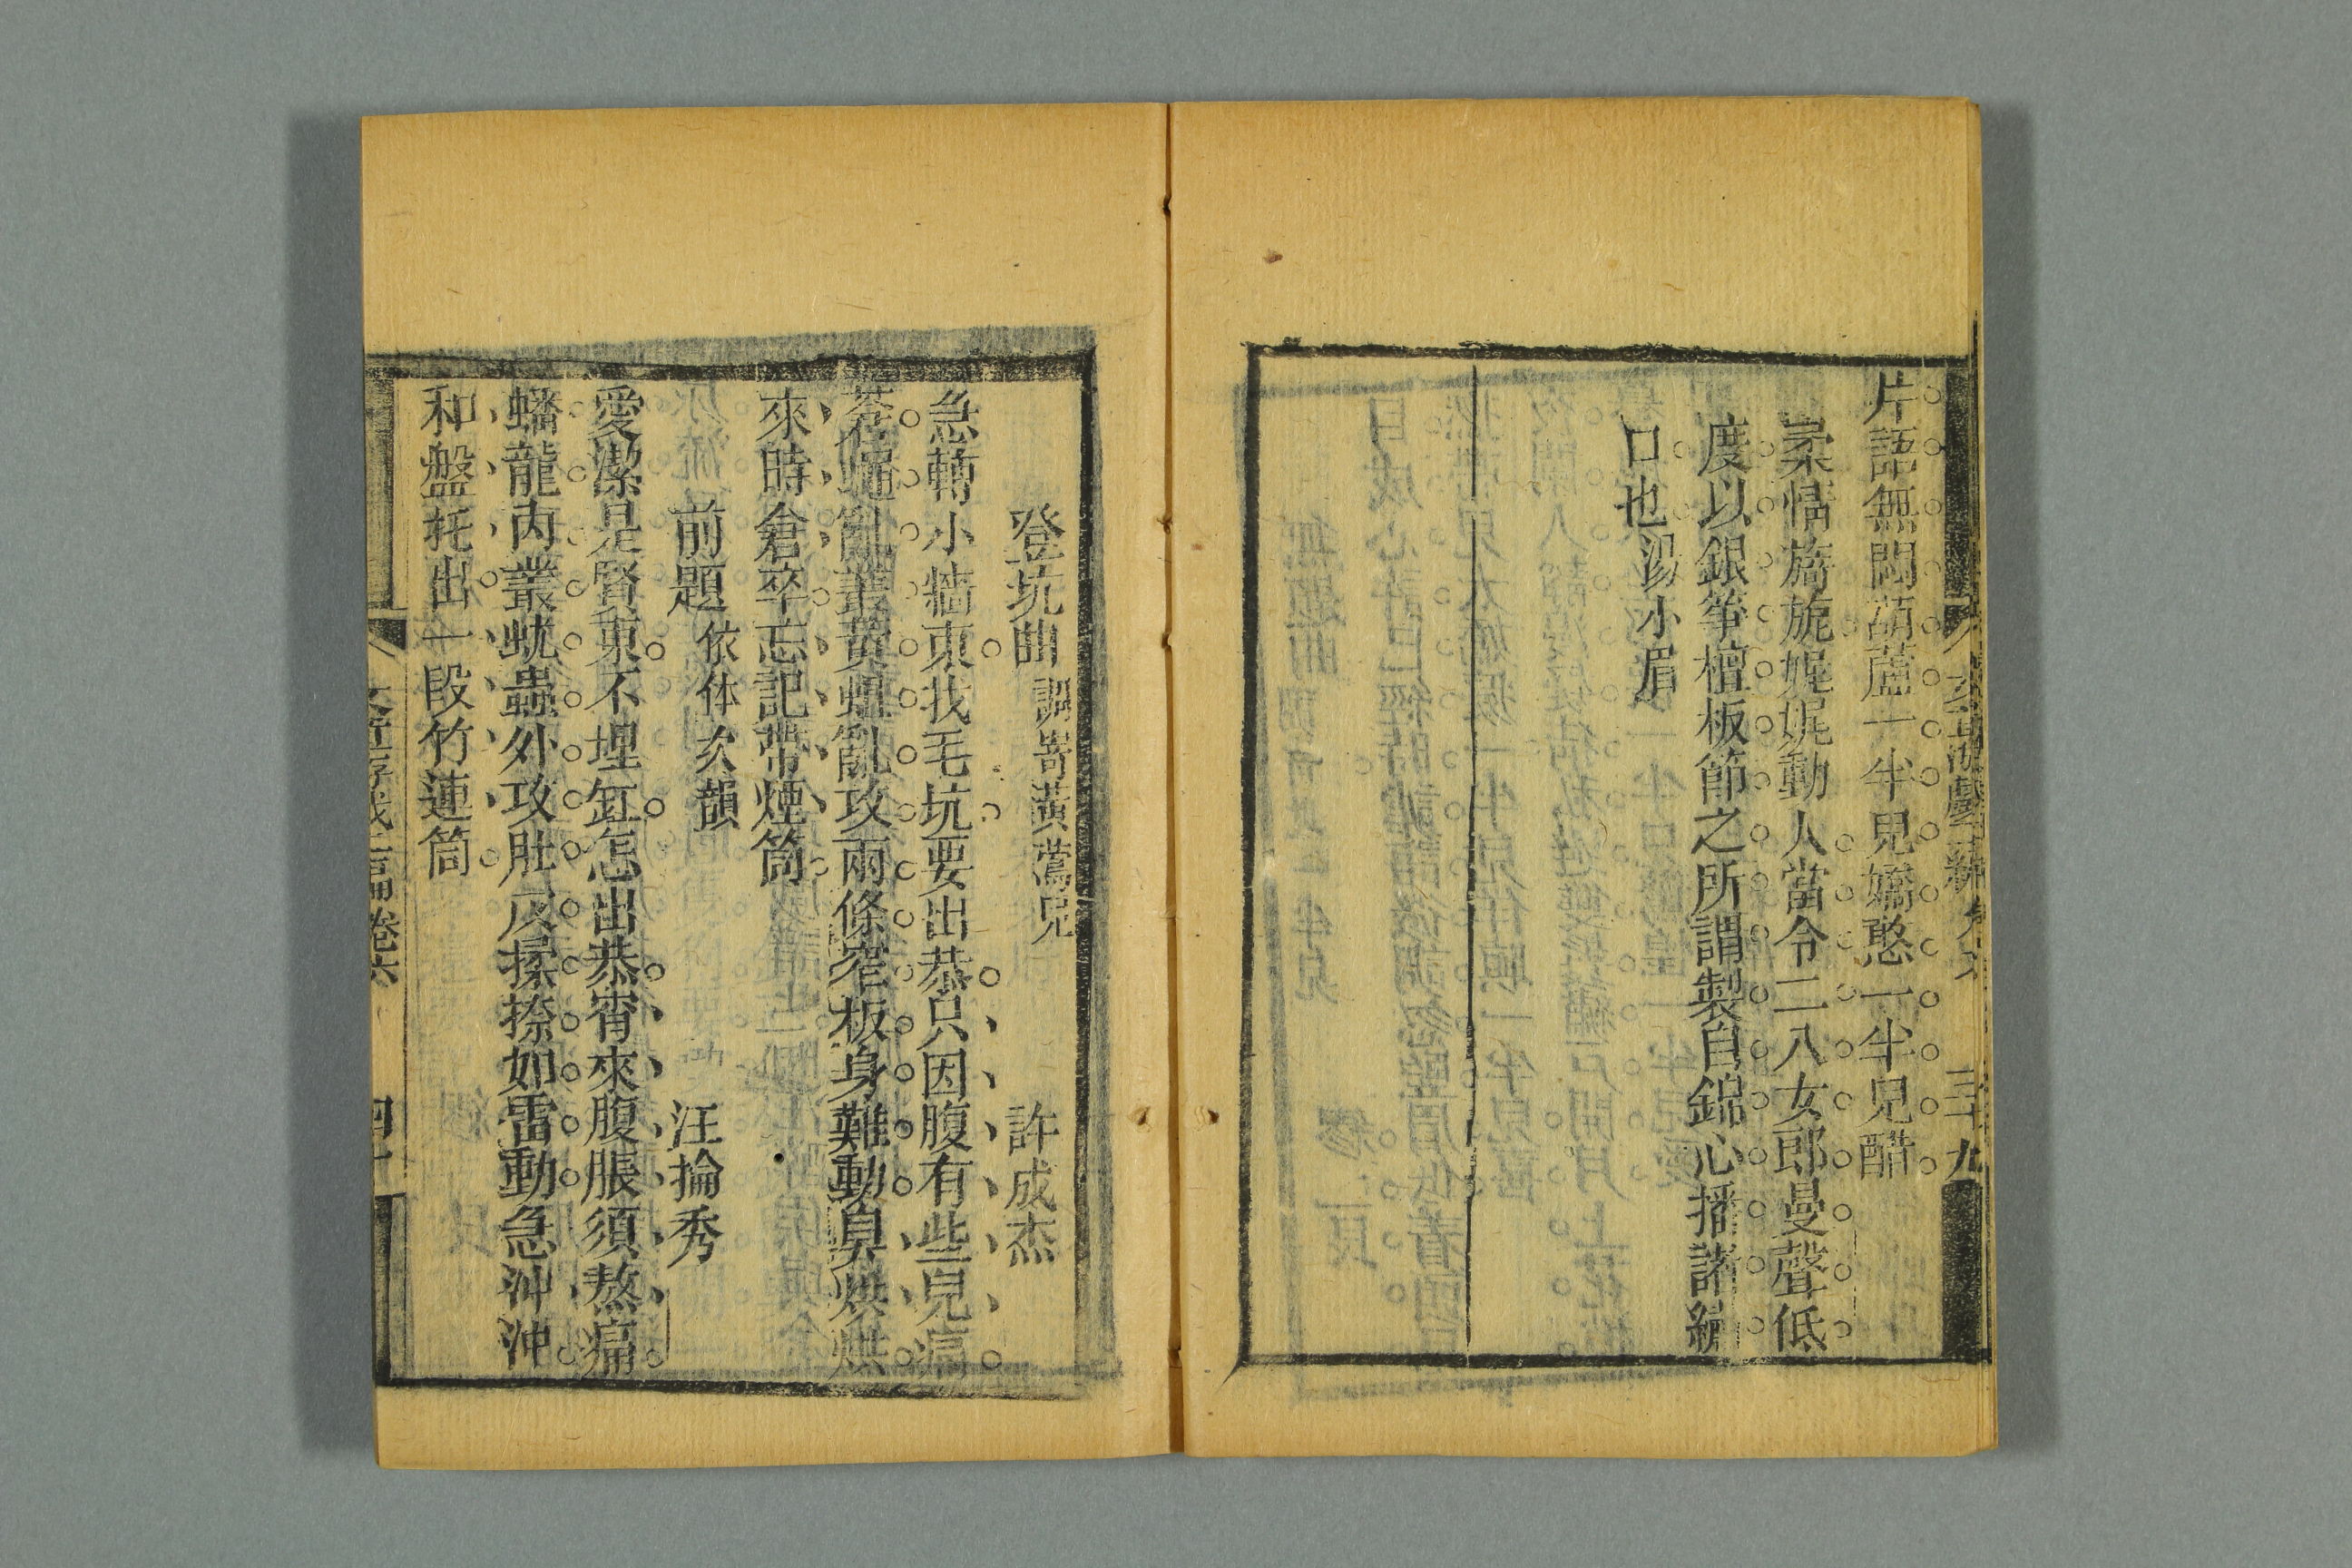 片語無悶葫蘆一半兒嬌憨一半兒醋
柔情旖旎娓娓動人當令二八女郎曼聲低
度以銀筝檀板節之所謂製自錦心播諸繡
口也 湯小眉
三十九
登坑曲 調寄黃鶯兒 許成杰
急轉小牆東找毛坑要出恭只因腹有些兒痛
蒼蠅亂叢黃蛆亂攻兩條窄板身難動臭烘烘
來時倉卒忘記帶煙筒
前題 依体次韻 汪掄秀
愛潔是賢東不埋缸怎出恭宵來腹脹須熬痛
蟠龍內叢蚘蟲外攻肚反揉捺如雷動急沖沖
和盤托出一段竹連筒
卷六 四十